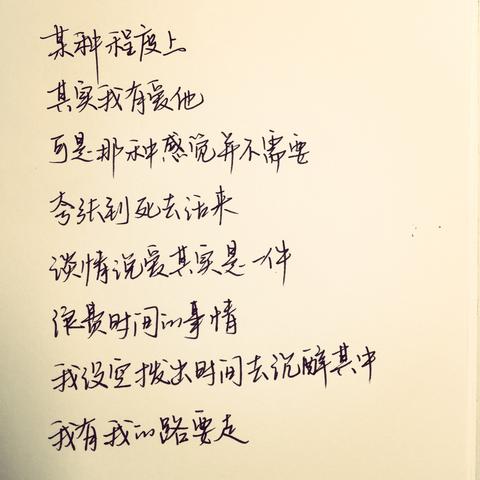 某种程度上
其实我有爱他
可是那种感觉并不需要
夸张到死去活来
谈情说爱其实是一件
很费时间的事情
我没空拨出时间去沉醉其中
我有我的路要走